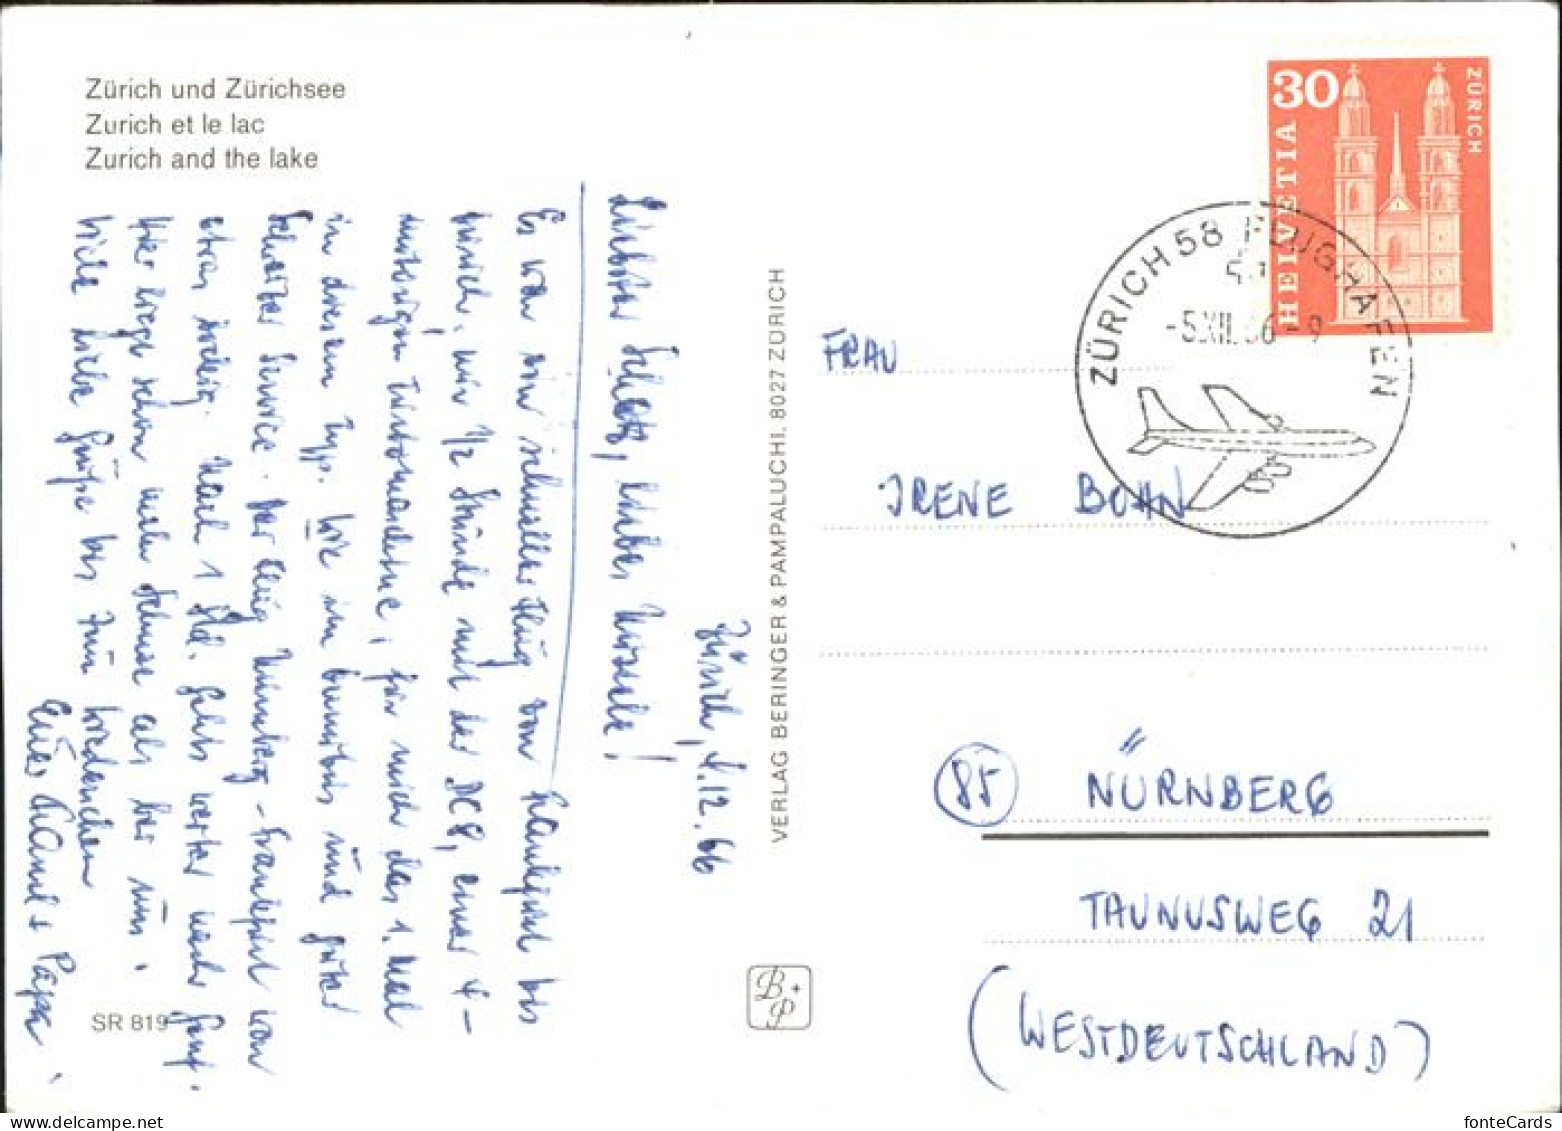 Zürich und Zürichsee
Zurich et le lac
Zurich and the lake
Zürich, 4.12.66
Liebster Schatz, liebes Mursele!
Es war ein schneller Flug von Frankfurt bis
Zürich, nur 1/2 Stunde mit der DC8, einer 4-
motorigen Turbomaschine, für mich das 1. Mal
in diesem Typ. Wie im Omnibus und guter
Schweizer Service. Der Flug Nürnberg – Frankfurt war
etwas wackelig. Nach 1 Std. geht's weiter nach Genf.
Hier liegt schon mehr Schnee als bei uns.
Viele liebe Grüße bis zum Wiedersehen
Euer Papa.
SR 819
VERLAG BERINGER & PAMPALUCHI, 8027 ZÜRICH
B+P
30
HELVETIA
ZÜRICH
ZÜRICH 58 FLUGHAFEN
-5.XII.66-9
FRAU
IRENE BOHN
85 NÜRNBERG
TAUNUSWEG 21
(WESTDEUTSCHLAND)
fonteCards
www.delcampe.net